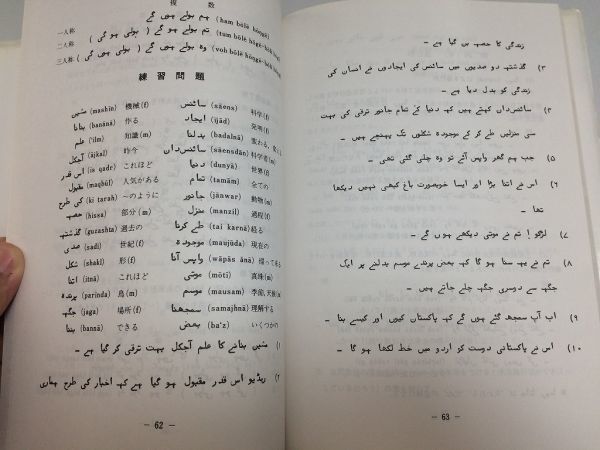 複 数
一人称 ہم بولے ہوں گے (ham bōlē hōṅgē)
二人称 تم بولے ہو گے ( بولی ہو گی ) (tum bōlē hōgē
三人称 وہ بولے ہوں گے ( بولی ہوں گی ) (voh bōlē hōṅgē
練 習 問 題
مشین (mashīn) 機械(f) سائنس (sāens) 科学(f)
بنانا (banānā) 作る ایجاد (ījād) 発明(f)
علم ('ilm) 知識(m) بدلنا (badalnā)
آجکل (ājkal) 昨今 سائنس داں (sāensdān) 科学者(m)
اس قدر (is qadr) これほど دنیا (dunyā) 世界(f)
مقبول (maqbūl) 人気がある تمام (tamām) 全ての
کی طرح (kī tarah) ~のように جانور (jānwar) 動物(m)
حصہ (hissa) 部分(m) منزل (manzil) 過程(f)
گذشتہ (guzashta) 過去の طے کرنا (tai karnā) 経る
صدی (sadī) 世紀(f) موجودہ (maujūda) 現在の
شکل (shakl) 形(f) واپس آنا (wāpas ānā) 帰って来る
اتنا (itnā) これほど موتی (mōtī) 真珠(m)
پرندہ (parinda) 鳥(m) موسم (mausam) 季節,天候(m)
جگہ (jaga) 場所(f) سمجھنا (samajhnā) 理解する
بننا (bannā) できる بعض (ba'z) いくつかの
۱) مشین بنانے کا علم آجکل بہت ترقی کر گیا ہے ۔
۲) ریڈیو اس قدر مقبول ہو گیا ہے کہ اخبار کی طرح ہماری
— 62 —
زندگی کا حصہ بن گیا ہے ۔
۳) گذشتہ دو صدیوں میں سائنس کی ایجادوں نے انسان کی
زندگی کو بدل دیا ہے ۔
۴) سائنس داں کہتے ہیں کہ دنیا کے تمام جانور ترقی کی بہت
سی منزلیں طے کر کے موجودہ شکلوں تک پہنچے ہیں ۔
۵) جب ہم گھر واپس آئے تو وہ چلی گئی تھی ۔
۶) اس نے اتنا بڑا اور ایسا خوبصورت باغ کبھی نہیں دیکھا
تھا ۔
۷) لڑکو! تم نے موتی دیکھے ہوں گے ۔
۸) تم نے یہ سنا ہو گا کہ بعض پرندے موسم بدلنے پر ایک
جگہ سے دوسری جگہ چلے جاتے ہیں ۔
۹) اب آپ سمجھ گئے ہوں گے کہ پاکستان کیوں اور کیسے بنا ۔
۱۰) اس نے پاکستانی دوست کو اردو میں خط لکھا ہو گا ۔
— 63 —